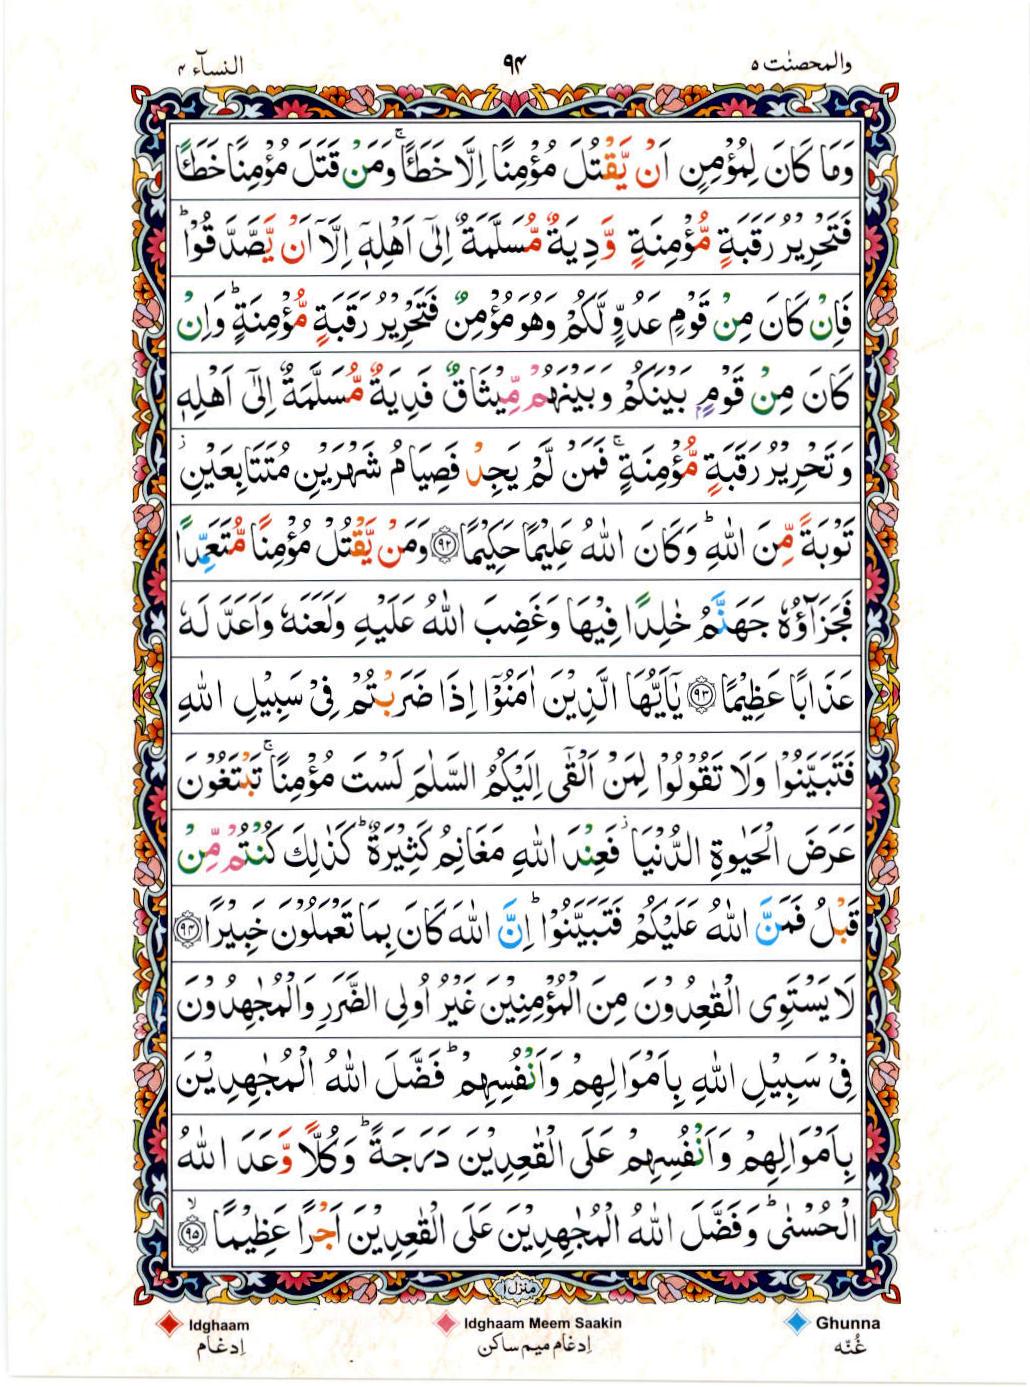 والمحصنٰت ۵
۹۴
النسآء ۴
وَمَا كَانَ لِمُؤْمِنٍ اَنْ يَّقْتُلَ مُؤْمِنًا اِلَّا خَطَـًٔا ۚ وَمَنْ قَتَلَ مُؤْمِنًا خَطَـًٔا
فَتَحْرِيْرُ رَقَبَةٍ مُّؤْمِنَةٍ وَّدِيَةٌ مُّسَلَّمَةٌ اِلٰۤى اَهْلِهٖۤ اِلَّاۤ اَنْ يَّصَّدَّقُوْا ؕ
فَاِنْ كَانَ مِنْ قَوْمٍ عَدُوٍّ لَّكُمْ وَهُوَ مُؤْمِنٌ فَتَحْرِيْرُ رَقَبَةٍ مُّؤْمِنَةٍ ؕ وَاِنْ
كَانَ مِنْ قَوْمٍۭ بَيْنَكُمْ وَبَيْنَهُمْ مِّيْثَاقٌ فَدِيَةٌ مُّسَلَّمَةٌ اِلٰۤى اَهْلِهٖ
وَتَحْرِيْرُ رَقَبَةٍ مُّؤْمِنَةٍ ۚ فَمَنْ لَّمْ يَجِدْ فَصِيَامُ شَهْرَيْنِ مُتَتَابِعَيْنِ ؗ
تَوْبَةً مِّنَ اللّٰهِ ؕ وَكَانَ اللّٰهُ عَلِيْمًا حَكِيْمًا ﴿۹۲﴾ وَمَنْ يَّقْتُلْ مُؤْمِنًا مُّتَعَمِّدًا
فَجَزَآؤُهٗ جَهَنَّمُ خٰلِدًا فِيْهَا وَغَضِبَ اللّٰهُ عَلَيْهِ وَلَعَنَهٗ وَاَعَدَّ لَهٗ
عَذَابًا عَظِيْمًا ﴿۹۳﴾ يٰۤاَيُّهَا الَّذِيْنَ اٰمَنُوْۤا اِذَا ضَرَبْتُمْ فِيْ سَبِيْلِ اللّٰهِ
فَتَبَيَّنُوْا وَلَا تَقُوْلُوْا لِمَنْ اَلْقٰۤى اِلَيْكُمُ السَّلٰمَ لَسْتَ مُؤْمِنًا ۚ تَبْتَغُوْنَ
عَرَضَ الْحَيٰوةِ الدُّنْيَا ؗ فَعِنْدَ اللّٰهِ مَغَانِمُ كَثِيْرَةٌ ؕ كَذٰلِكَ كُنْتُمْ مِّنْ
قَبْلُ فَمَنَّ اللّٰهُ عَلَيْكُمْ فَتَبَيَّنُوْا ؕ اِنَّ اللّٰهَ كَانَ بِمَا تَعْمَلُوْنَ خَبِيْرًا ﴿۹۴﴾
لَا يَسْتَوِى الْقٰعِدُوْنَ مِنَ الْمُؤْمِنِيْنَ غَيْرُ اُولِى الضَّرَرِ وَالْمُجٰهِدُوْنَ
فِيْ سَبِيْلِ اللّٰهِ بِاَمْوَالِهِمْ وَاَنْفُسِهِمْ ؕ فَضَّلَ اللّٰهُ الْمُجٰهِدِيْنَ
بِاَمْوَالِهِمْ وَاَنْفُسِهِمْ عَلَى الْقٰعِدِيْنَ دَرَجَةً ؕ وَكُلًّا وَّعَدَ اللّٰهُ
الْحُسْنٰى ؕ وَفَضَّلَ اللّٰهُ الْمُجٰهِدِيْنَ عَلَى الْقٰعِدِيْنَ اَجْرًا عَظِيْمًا ۙ ﴿۹۵﴾
منزل ۱
Idghaam
اِدغام
Idghaam Meem Saakin
اِدغام میم ساکن
Ghunna
غُنّه